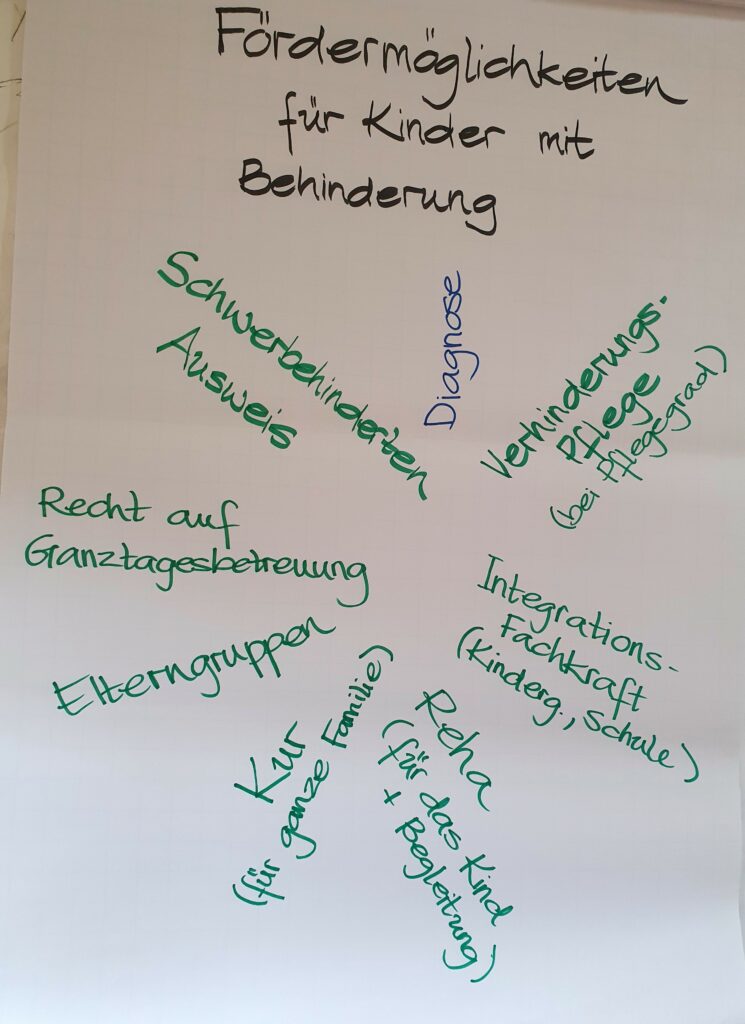 Fördermöglichkeiten
für Kinder mit
Behinderung
Diagnose
Schwerbehinderten
Ausweis
Verhinderungs-
Pflege
(bei Pflegegrad)
Recht auf
Ganztagesbetreuung
Integrations-
Fachkraft
(Kinderg., Schule)
Elterngruppen
Kur
(für ganze Familie)
Reha
(für das Kind
+ Begleitung)